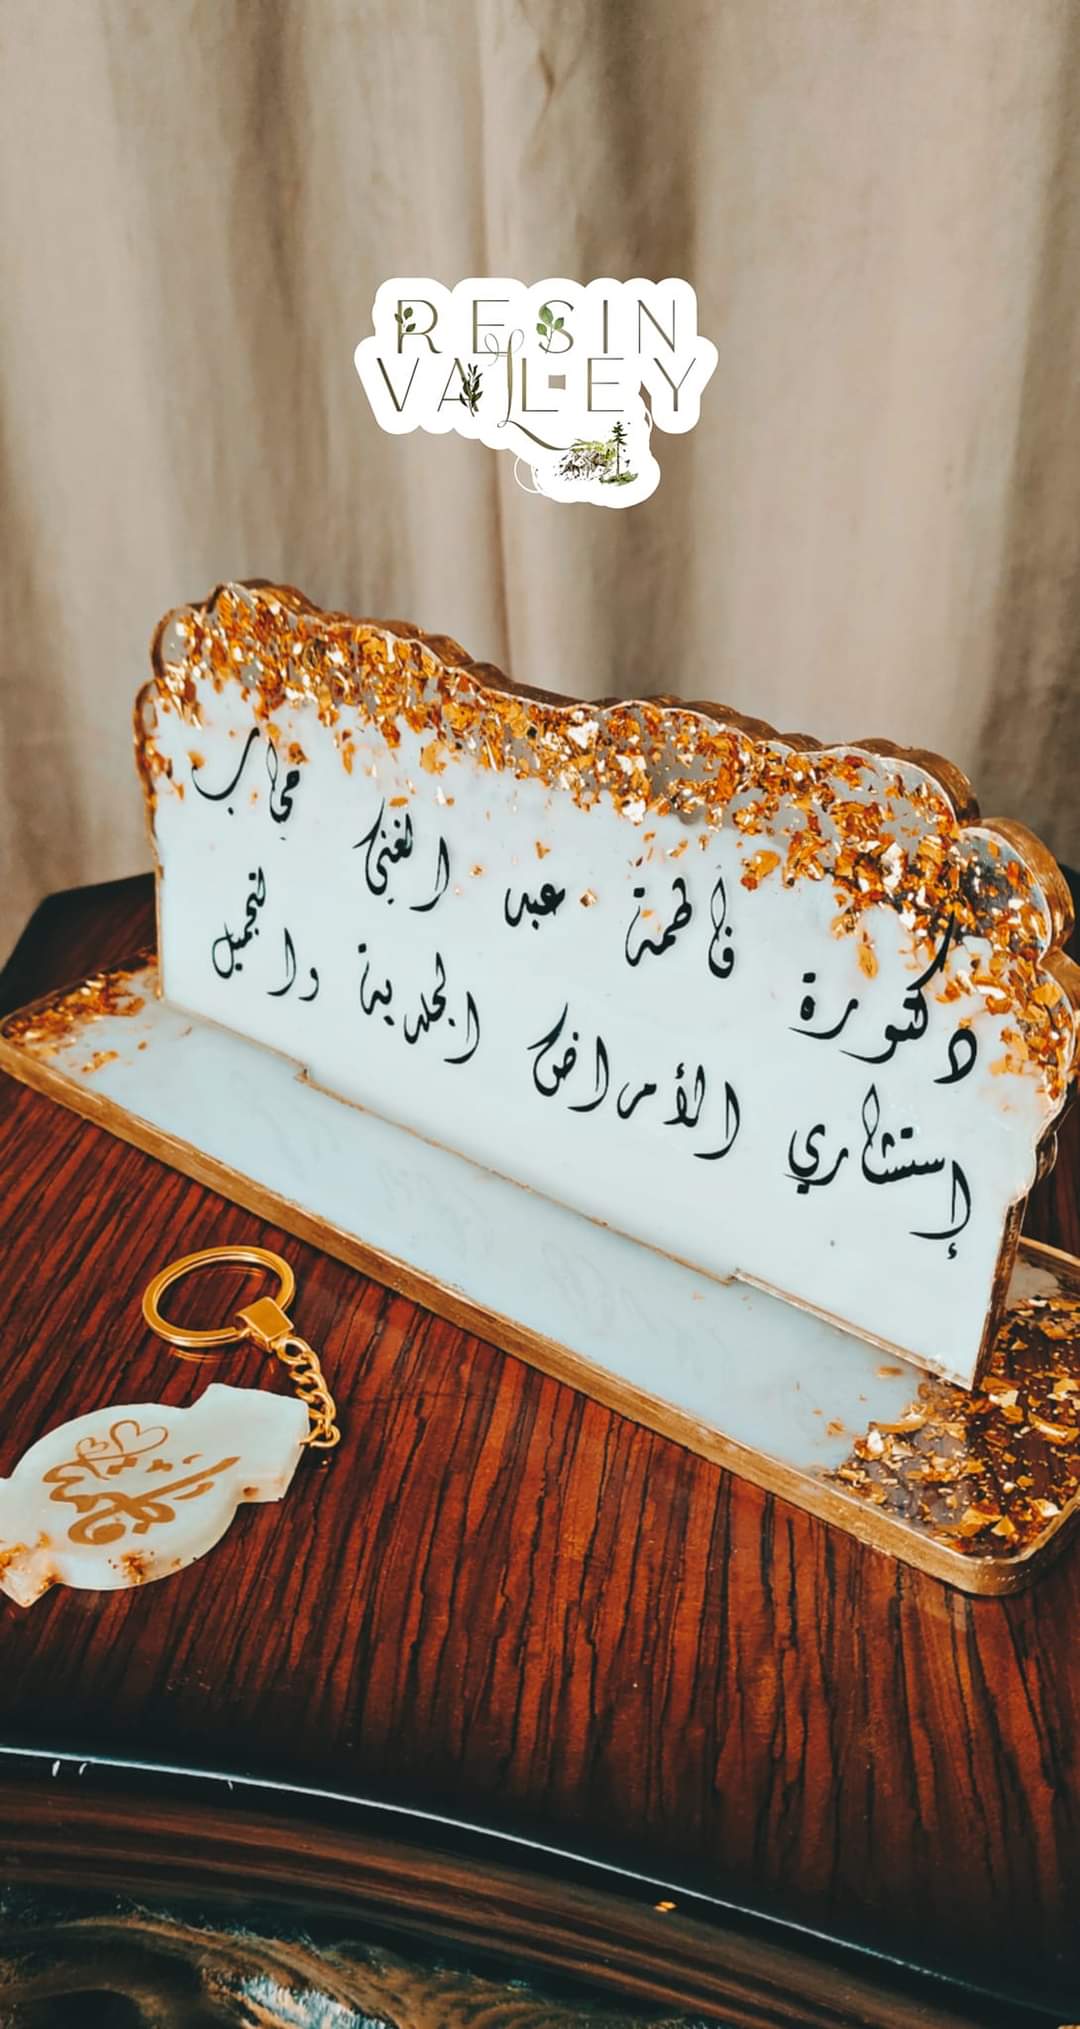 RESIN
VALLEY
دكتورة فاطمة عبد الغني محارب
إستشاري الأمراض الجلدية والتجميل
فاطمة